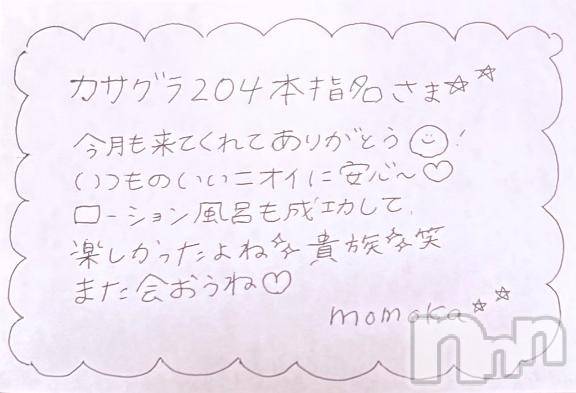 カサグラ204本指名さま☆☆
今月も来てくれてありがとう☺!
いつものいいニオイに安心〜♡
ローション風呂も成功して、
楽しかったよね☆貴族☆笑
また会おうね♡
momoka☆☆
nnn